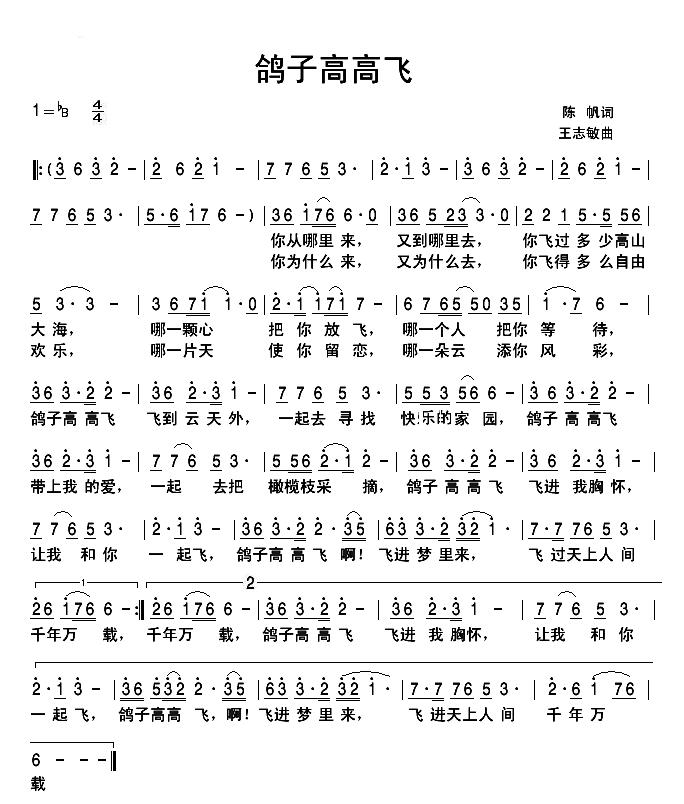 鸽子高高飞
1=♭B 4/4 陈 帆词
王志敏曲
‖:( 3 6 3 2 - | 2 6 2 1 - | 7 7 6 5 3· | 2·1 3 - | 3 6 3 2 - | 2 6 2 1 - |
7 7 6 5 3· | 5·6 1 7 6 - ) | 36 176 6·0 | 36 5 23 3·0 | 2 2 1 5·5 56 |
你从哪里 来， 又到哪里去， 你飞过 多 少高山
你为什么 来， 又为什么去， 你飞得 多 么自由
5 3·3 - | 3 6 71 1·0 | 2·1 171 7 - | 6 7 65 50 35 | 1·7 6 - |
大 海， 哪一颗心 把 你 放 飞， 哪一个人 把你 等 待，
欢 乐， 哪一片天 使 你 留 恋， 哪一朵云 添你 风 彩，
36 3·2 2 - | 36 2·3 1 - | 7 7 6 5 3· | 5 5 3 56 6 - | 36 3·2 2 - |
鸽子高 高飞 飞到 云 天 外， 一起去 寻 找 快乐的家 园， 鸽子 高 高飞
36 2·3 1 - | 7 7 6 5 3· | 5 56 2·1 2 - | 36 3·2 2 - | 36 2·3 1 - |
带上我 的爱， 一起 去把 橄榄枝采 摘， 鸽子 高 高 飞 飞进 我胸怀，
7 7 6 5 3· | 2·1 3 - | 36 3·2 2·35 | 63 3·2 32 1· | 7·7 76 5 3· |
让我 和你 一 起飞， 鸽子高高 飞 啊！ 飞进 梦 里来， 飞 过天上人 间
1 2
26 176 6 - :‖ 26 176 6 - | 36 3·2 2 - | 36 2·3 1 - | 7 7 6 5 3· |
千年万 载， 千年万 载， 鸽子高 高 飞 飞进 我 胸怀， 让我 和 你
2·1 3 - | 36 532 2·35 | 63 3·2 32 1· | 7·7 76 5 3· | 2·6 1 76 |
一 起飞， 鸽子高高 飞，啊！飞进 梦 里 来， 飞 进天上人 间 千 年 万
6 - - - ‖
载